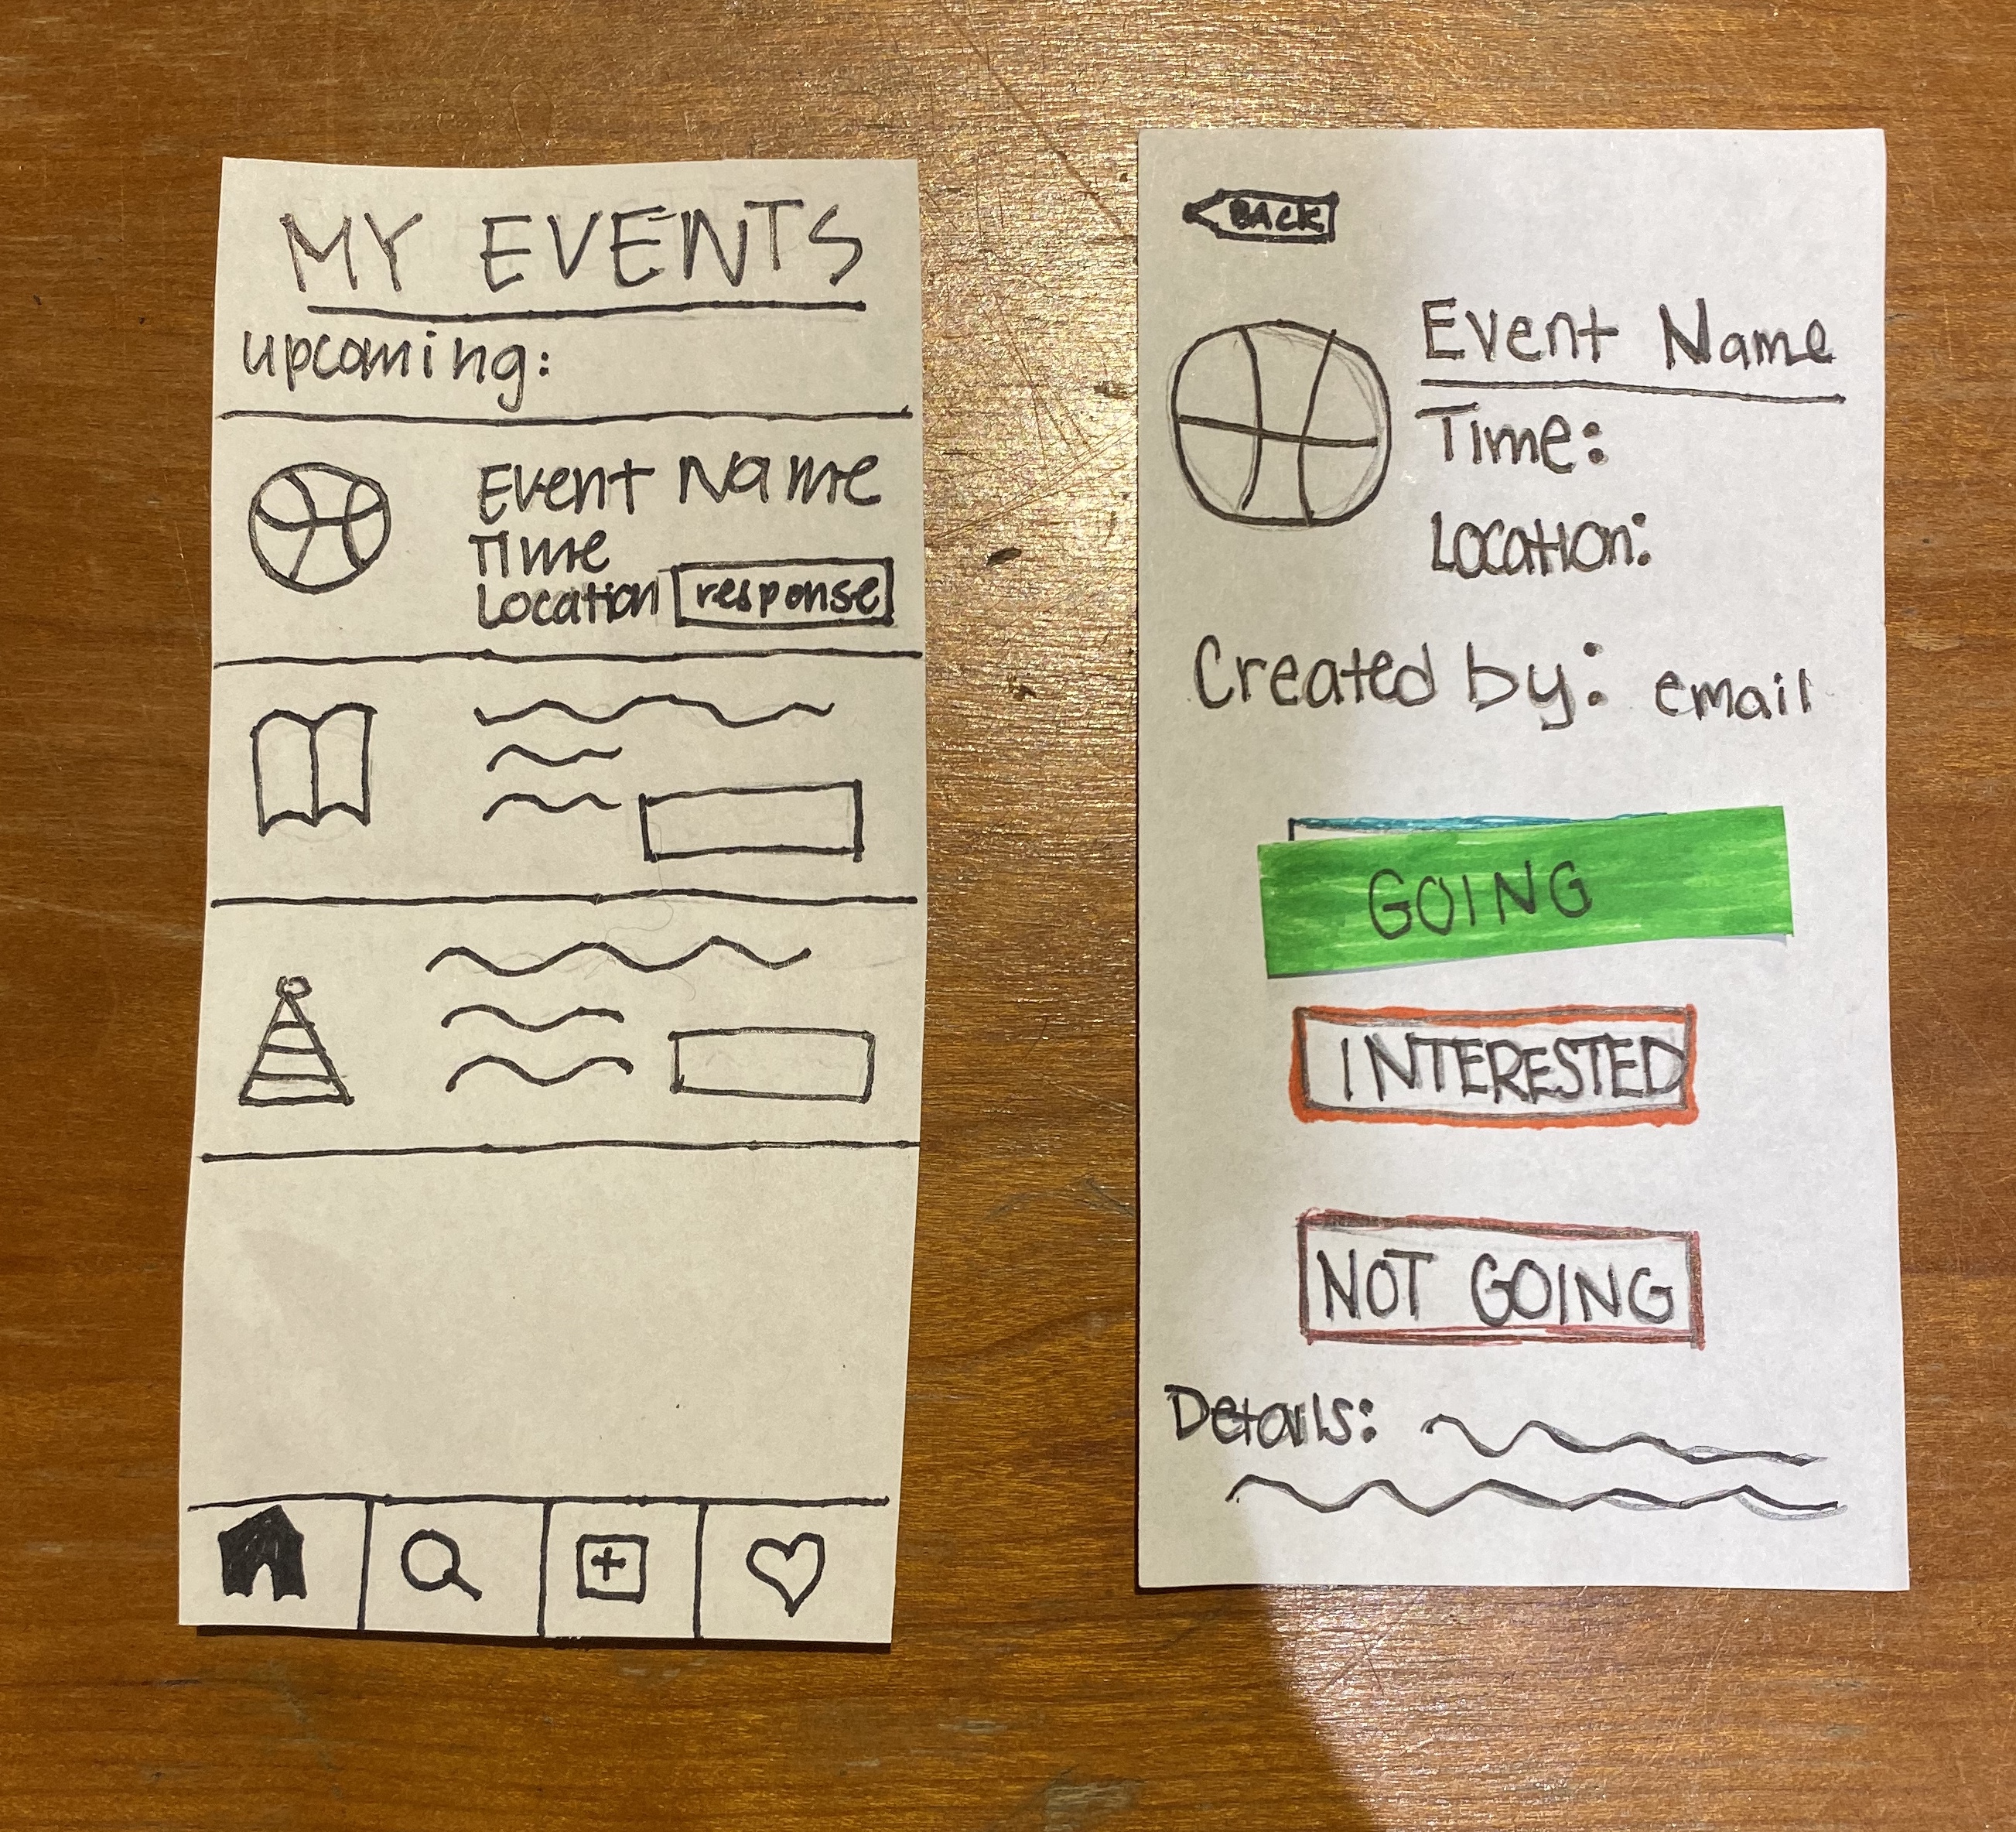 MY EVENTS
upcoming:
Event Name
Time
Location response
BACK
Event Name
Time:
Location:
Created by: email
GOING
INTERESTED
NOT GOING
Details: